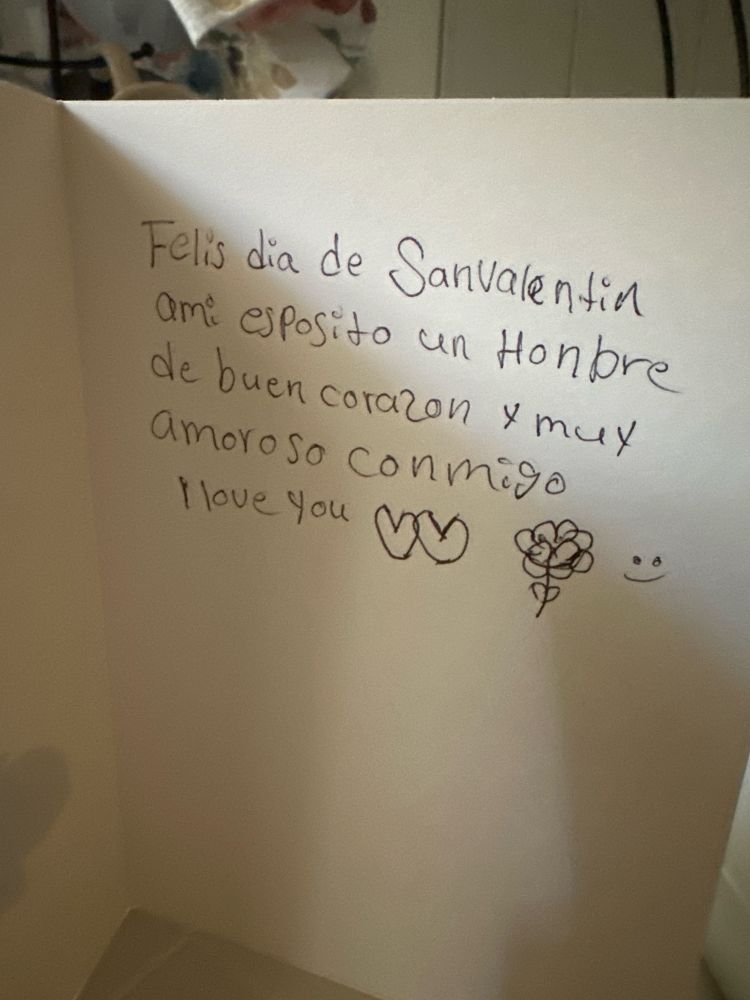 Felis dia de Sanvalentin
ami esposito un Honbre
de buen corazon y muy
amoroso conmigo
I love you